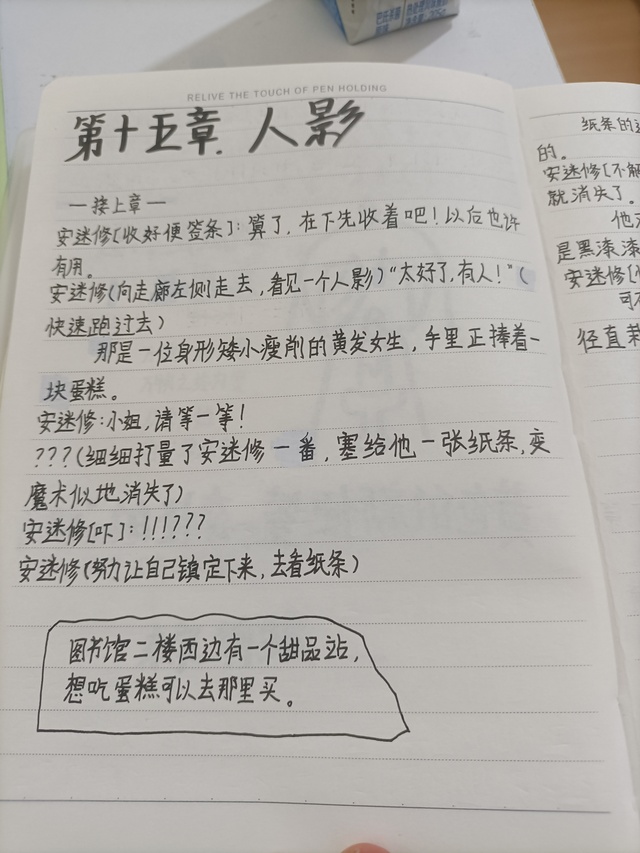 RELIVE THE TOUCH OF PEN HOLDING
第十五章.人影
—接上章—
安迷修[收好便签条]:算了,在下先收着吧!以后也许
有用。
安迷修(向走廊左侧走去,看见一个人影)“太好了,有人!”(
快速跑过去)
那是一位身形矮小瘦削的黄发女生,手里正捧着一
块蛋糕。
安迷修:小姐,请等一等!
???(细细打量了安迷修一番,塞给他一张纸条,变
魔术似地消失了)
安迷修[吓]:!!!???
安迷修(努力让自己镇定下来,去看纸条)
图书馆二楼西边有一个甜品站,
想吃蛋糕可以去那里买。
纸条的
的。
安迷修[不解
就消失了。
他
是黑漆漆
安迷修[
可
径直